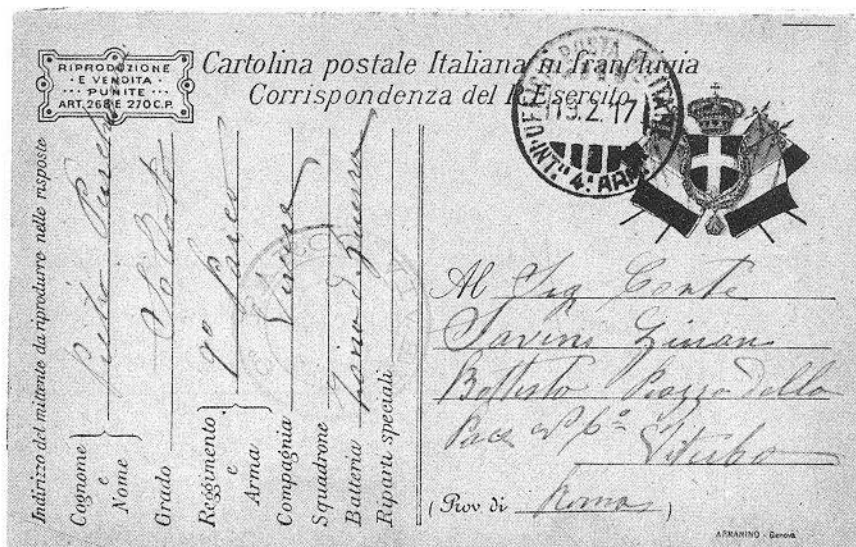 RIPRODUZIONE
E VENDITA
PUNITE
ART. 268 E 270 C.P.
Cartolina postale Italiana in franchigia
Corrispondenza del R. Esercito
UFFICIO POSTA MILITARE
19.2.17
INT.ZA 4ª ARM
Indirizzo del mittente da riprodurre nelle risposte
Cognome e Nome Pietro
Grado Soldato
Reggimento e Arma 9º Parco
Compagnia
Squadrone
Batteria Zona di guerra
Riparti speciali
Al Sig Conte
Savini
Battista Piazza della
Pace Nº 6
Viterbo
(Prov di Roma)
ARMANINO - Genova